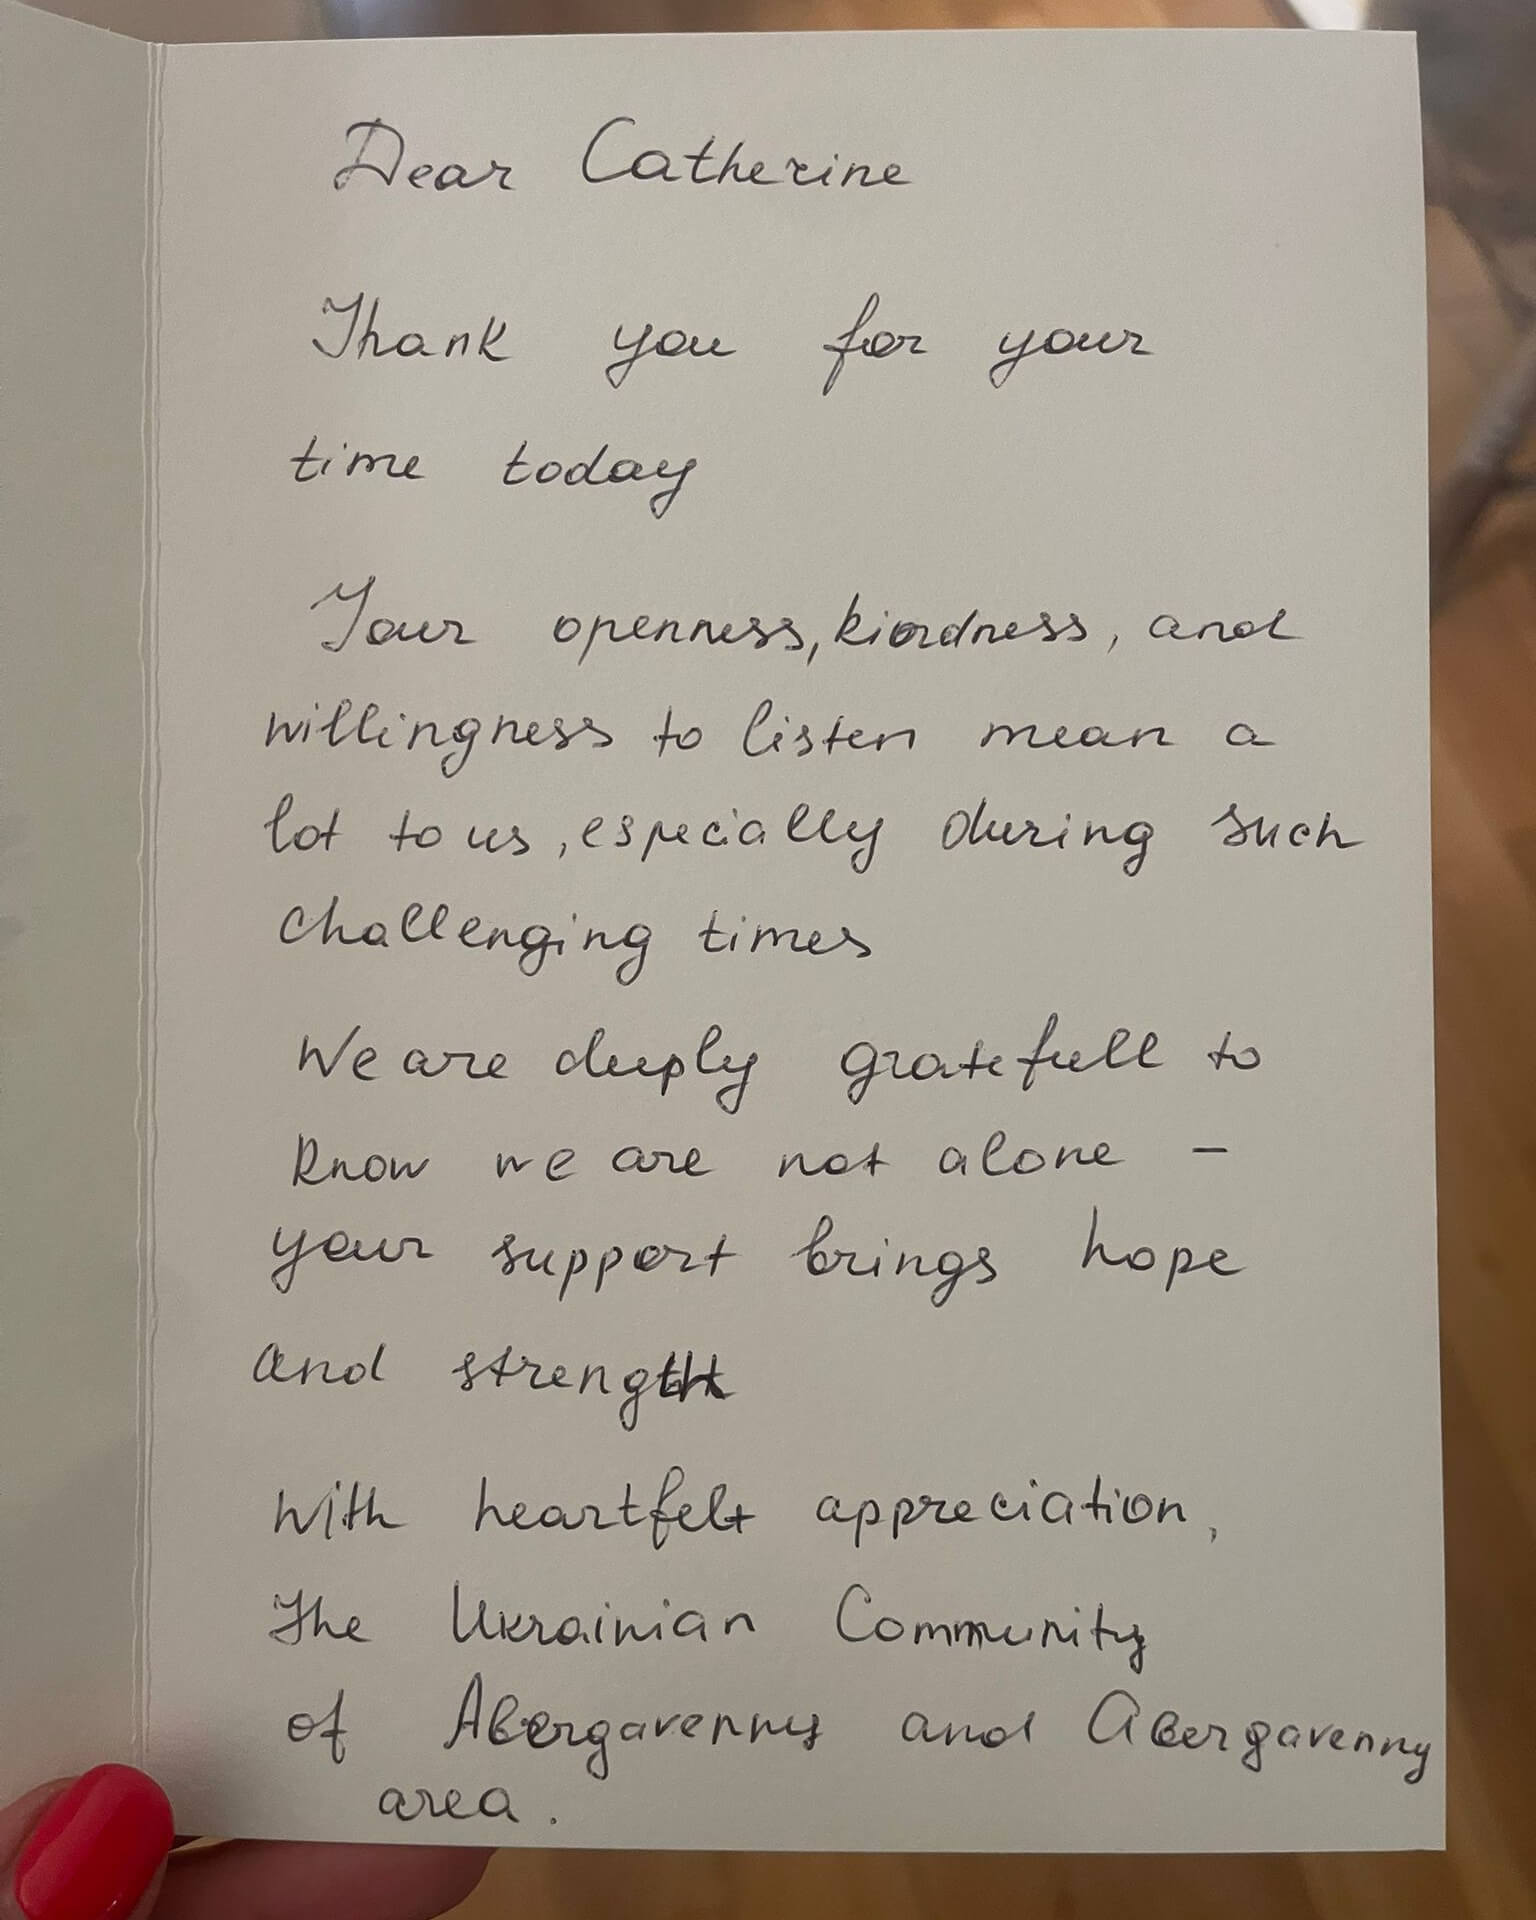 Dear Catherine
Thank you for your
time today
Your openness, kindness, and
willingness to listen mean a
lot to us, especially during such
challenging times
We are deeply gratefull to
know we are not alone –
your support brings hope
and strength
With heartfelt appreciation,
The Ukrainian Community
of Abergavenny and Abergavenny
area.